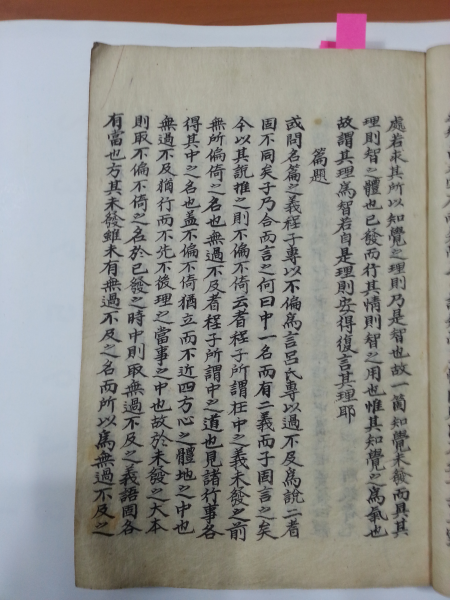 處若求其所以知覺之理則乃是智也故一箇知覺未發而具其
理則智之體也已發而行其情則智之用也惟其知覺之爲氣也
故謂其理爲智若自是理則安得復言其理耶
篇題
或問名篇之義程子專以不偏爲言呂氏專以過不及爲說二者
固不同矣子乃合而言之何曰中一名而有二義而子固言之矣
今以其說推之則不偏不倚云者程子所謂在中之義未發之前
無所偏倚之名也無過不及者程子所謂中之道也見諸行事各
得其中之名也盖不偏不倚猶立而不近四方心之體地之中也
無過不及猶行而不先不後理之當事之中也故於未發之大本
則取不偏不倚之名於已發之時中則取無過不及之義語固各
有當也方其未發雖未有無過不及之名而所以爲無過不及之